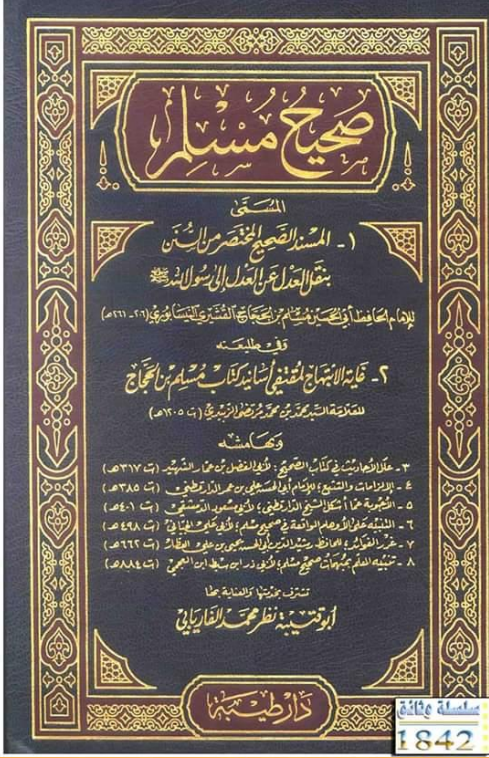 صحيح مسلم
المسمى
١- المسند الصحيح المختصر من السنن
بنقل العدل عن العدل إلى رسول الله ﷺ
للإمام الحافظ أبي الحسين مسلم بن الحجاج القشيري النيسابوري (٢٠٦-٢٦١هـ)
وفي طليعته
٢- غاية الابتهاج لمقتفي أسانيد كتاب مسلم بن الحجاج
للعلامة السيد محمد بن محمد مرتضى الزبيدي (ت ١٢٠٥هـ)
وبهامشه
٣- علل الأحاديث في كتاب الصحيح: لأبي الفضل بن عمار الشهيد (ت ٣١٧هـ)
٤- الإلزامات والتتبع: للإمام أبي الحسن علي بن عمر الدارقطني (ت ٣٨٥هـ)
٥- الأجوبة عما أشكل الشيخ الدارقطني: لأبي مسعود الدمشقي (ت ٤٠١هـ)
٦- التنبيه على الأوهام الواقعة في صحيح مسلم: لأبي علي الجياني (ت ٤٩٨هـ)
٧- غرر الفوائد: للحافظ رشيد الدين أبي الحسين يحيى بن علي العطار (ت ٦٦٢هـ)
٨- تنبيه المعلم بمبهمات صحيح مسلم: لأبي ذر ابن سبط ابن العجمي (ت ٨٨٤هـ)
تشرف بخدمتها والعناية بها
أبو قتيبة نظر محمد الفاريابي
دار طيبة
سلسلة وثائق
1842